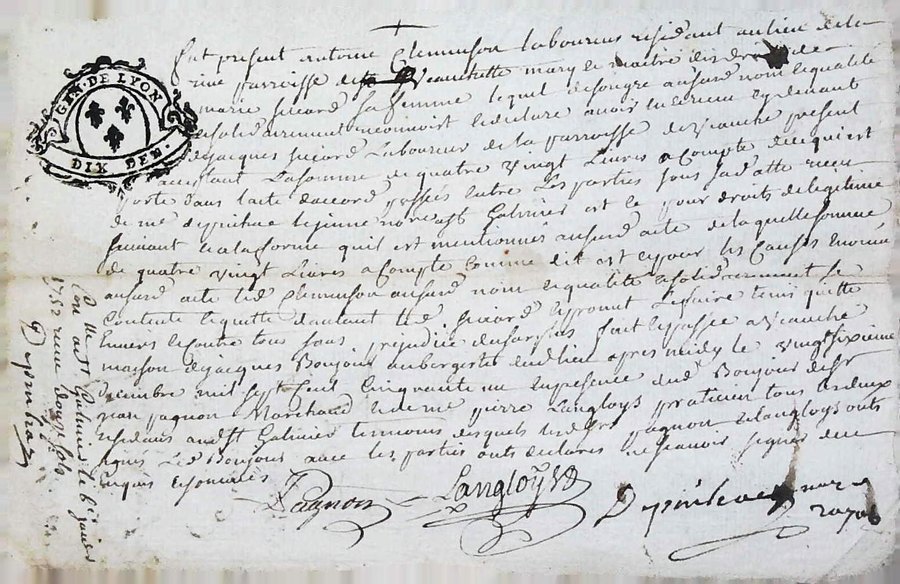 GEN. DE LYON
DIX DEN.
fut présent antoine Clemenson laboureur résidant au lieu de la
parroisse de Veauchette mary et maitre des droits de
marie sicard sa femme lequel de son gre ausurd nom et qualité
et solidairement reconnoist et déclare avoir eu et receu cy devant
de jacques sicard Laboureur de la parroisse de Veauche présent
acceptant La somme de quatre Vingt Livres a Compte de ce qui est
porté dans l'acte daccord passés entre Les parties sous sa datte receu
de me notre a st Galmier et ce pour droits de legitime
suivant et a la forme quil est mentionnés ausurd acte de laquelle somme
de quatre Vingt Livres a Compte Comme dit est et pour les Causes enoncé
ausurd acte led Clemenson ausurd nom et qualité et solidairement se
Contente et quitte dautant led sicard et promet Le faire tenir quitte
Envers et contre tous sans préjudice du surplus fait et passé a Veauche
maison de jacques Bonjour aubergiste dud lieu apres midy le Vingt sixieme
décembre mil sept Cent Cinquante un En presence dud Bonjour de sr
jean pagnon Marchand et de me pierre Langloys praticien tous deux
résidans aud st Galmier temoins desquels lesd srs pagnon et Langloys onts
signés Led Bonjour avec les parties onts declarés ne scavoir signer de ce
enquis et sommés
Pagnon Langloys
notre royal
Con lle a st Galmier le 6e janvier
1752 receu douze sols